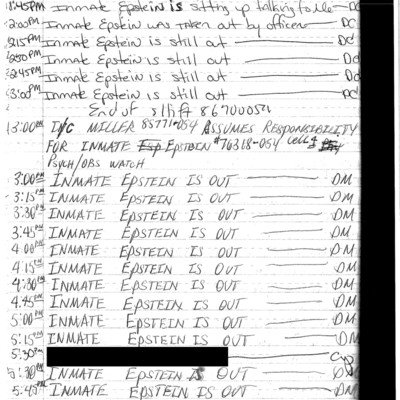 1:45PM Inmate Epstein is sitting up talking to Dc
2:00PM Inmate Epstein was taken out by officer DC
2:15PM Inmate Epstein is still out DC
2:30PM Inmate Epstein is still out DC
2:45PM Inmate Epstein is still out DC
3:00PM Inmate Epstein is still out DC
End of shift
13:00PM I/C MILLER 85771-054 ASSUMES RESPONSIBILITY
FOR INMATE EPSTEIN #76318-054 CELL 4
PSYCH/OBS WATCH
3:00PM INMATE EPSTEIN IS OUT DM
3:15PM INMATE EPSTEIN IS OUT DM
3:30PM INMATE EPSTEIN IS OUT DM
3:45PM INMATE EPSTEIN IS OUT DM
4:00PM INMATE EPSTEIN IS OUT DM
4:15PM INMATE EPSTEIN IS OUT DM
4:30PM INMATE EPSTEIN IS OUT DM
4:45PM INMATE EPSTEIN IS OUT DM
5:00PM INMATE EPSTEIN IS OUT DM
5:15PM INMATE EPSTEIN IS OUT DM
5:30PM
5:30PM INMATE EPSTEIN IS OUT DM
5:45PM INMATE EPSTEIN IS OUT DM